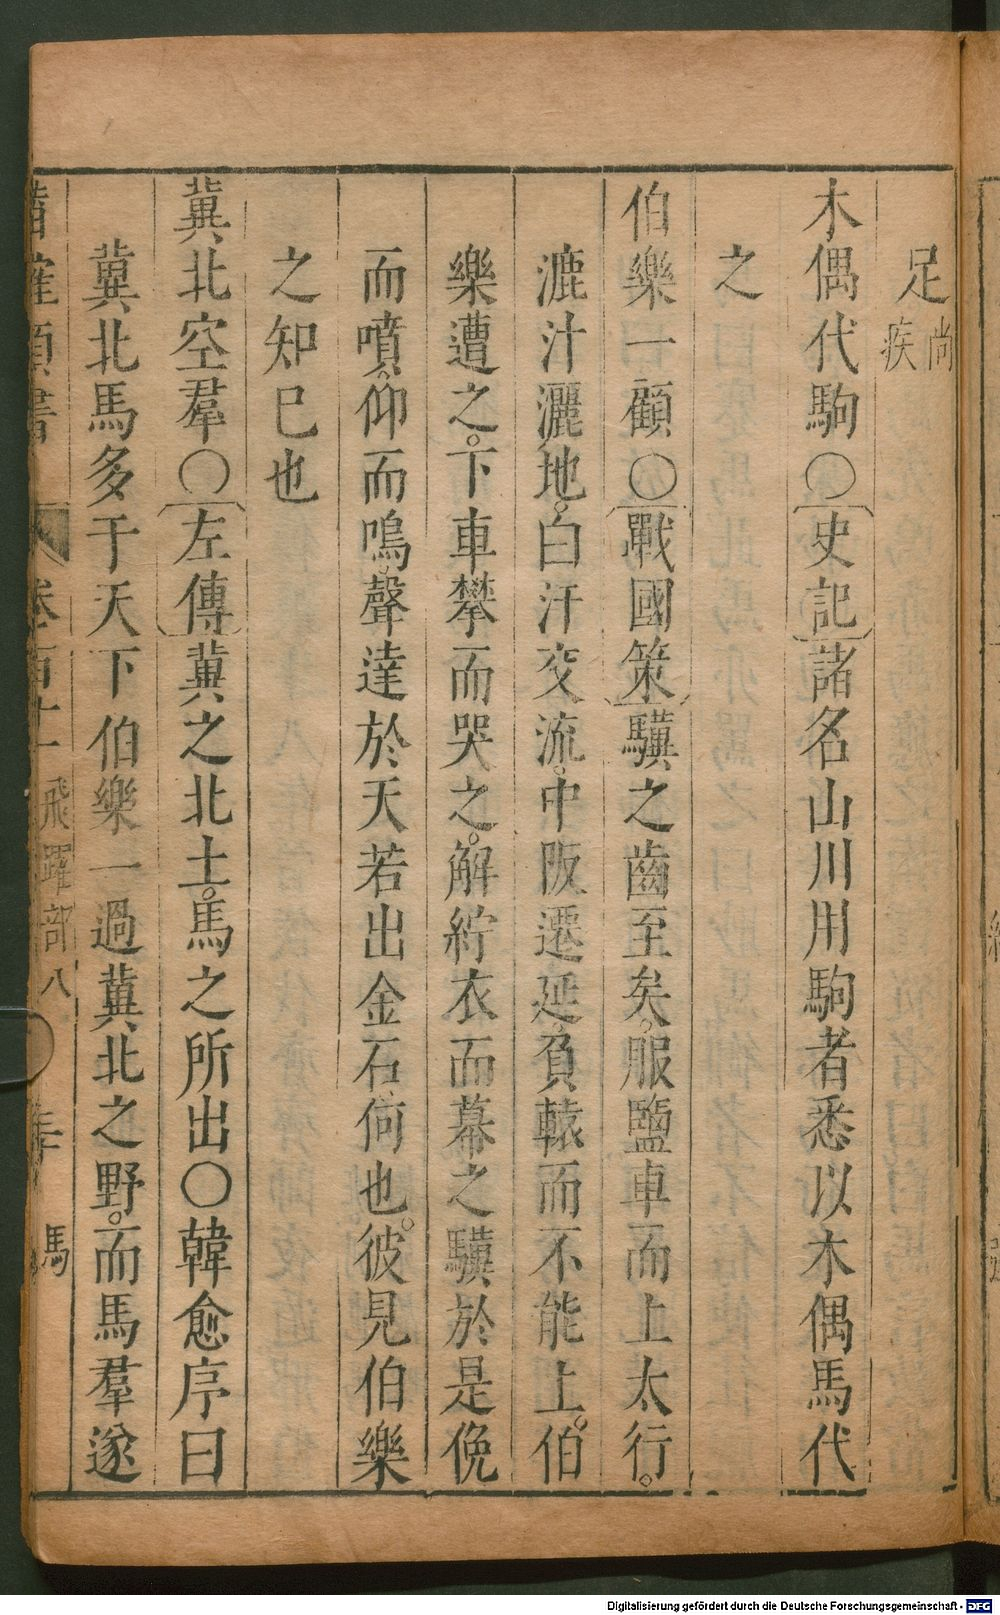 足尚疾
木偶代駒○史記諸名山川用駒者悉以木偶馬代
之
伯樂一顧○戰國策驥之齒至矣。服鹽車而上太行。
漉汁灑地。白汗交流。中阪遷延負轅而不能上。伯
樂遭之。下車攀而哭之。解紵衣而幕之驥於是俛
而噴。仰而鳴。聲達於天若出金石何也。彼見伯樂
之知巳也
冀北空羣○左傳冀之北土。馬之所出○韓愈序曰
冀北馬多于天下伯樂一過冀北之野。而馬羣遂
卷百十一 飛躍部八 馬
Digitalisierung gefördert durch die Deutsche Forschungsgemeinschaft - DFG